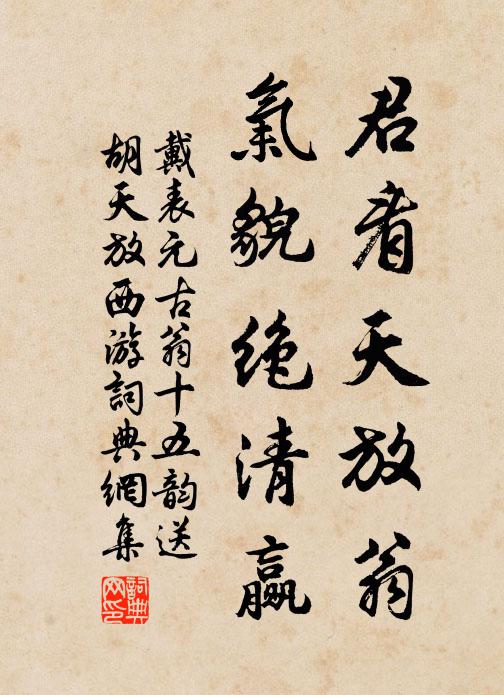 君看天放翁
氣貌絶清贏
戴表元古翁十五韵送
胡天放西游詞典網集
詞典網印